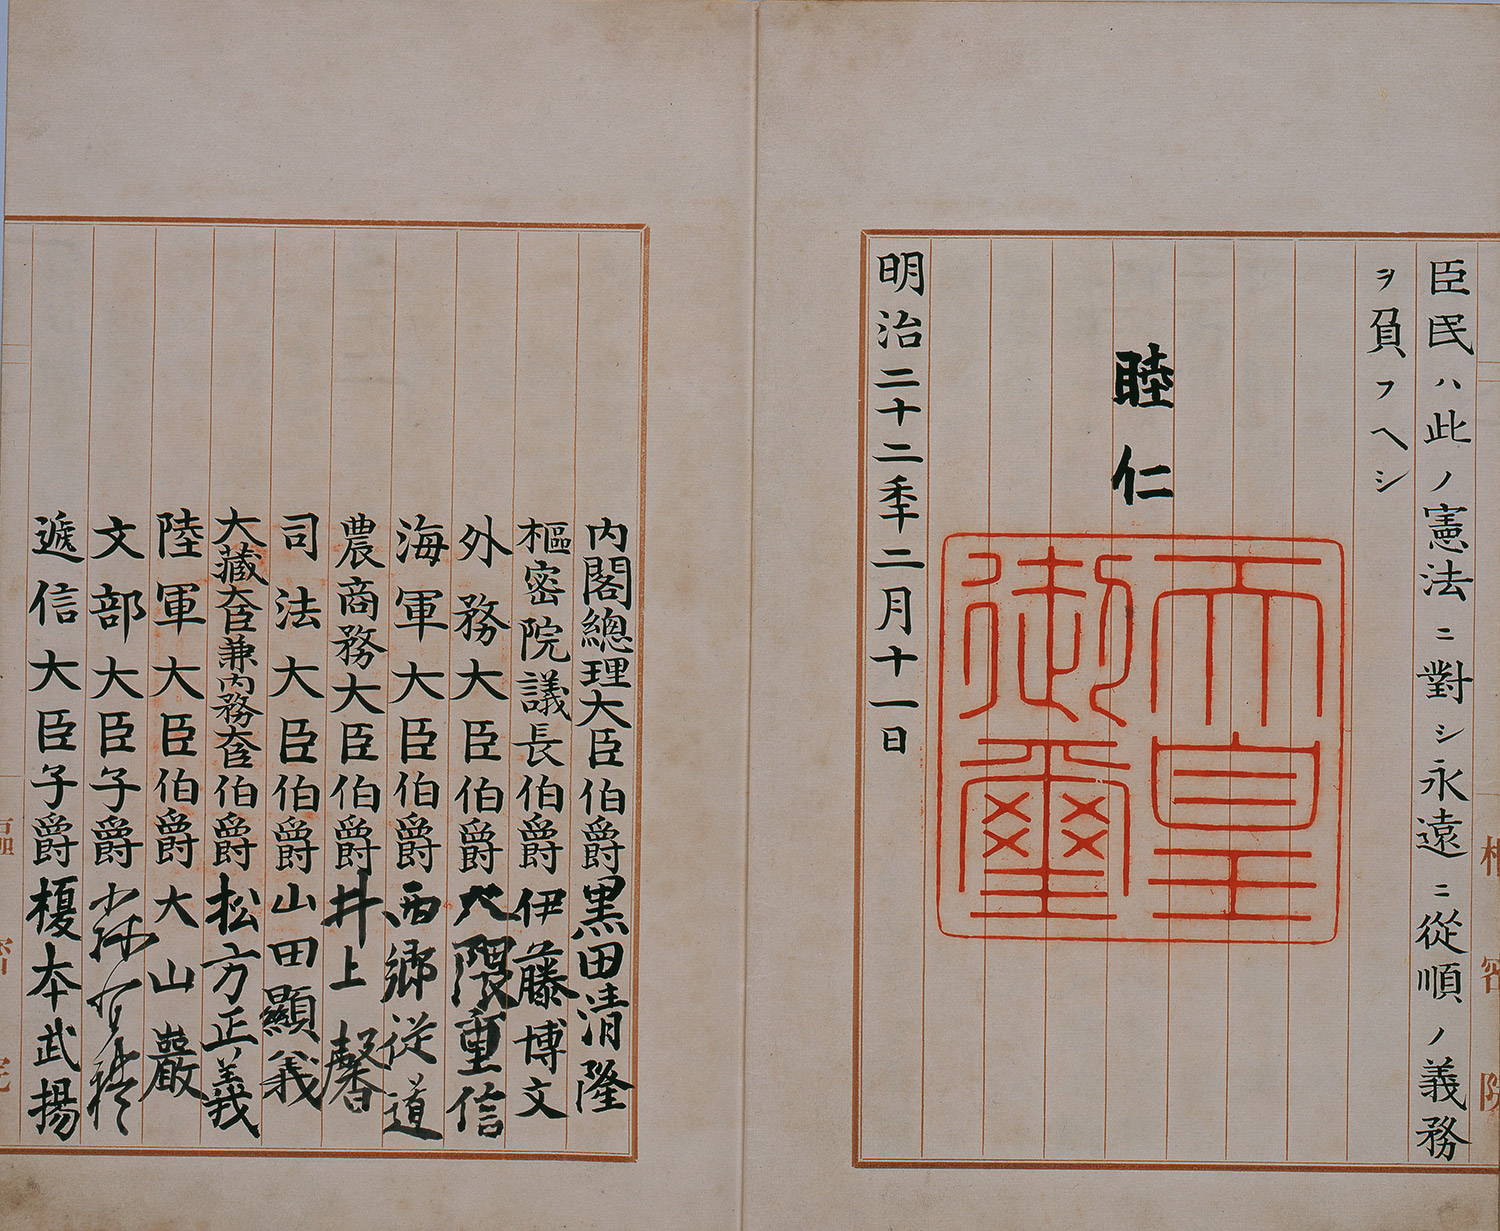 臣民ハ此ノ憲法ニ對シ永遠ニ從順ノ義務
ヲ負フヘシ
睦仁
天皇御璽
明治二十二年二月十一日
內閣總理大臣伯爵黒田清隆
樞密院議長伯爵伊藤博文
外務大臣伯爵大隈重信
海軍大臣伯爵西郷従道
農商務大臣伯爵井上馨
司法大臣伯爵山田顯義
大藏大臣兼內務大臣伯爵松方正義
陸軍大臣伯爵大山巖
文部大臣子爵森有禮
遞信大臣子爵榎本武揚
樞密院